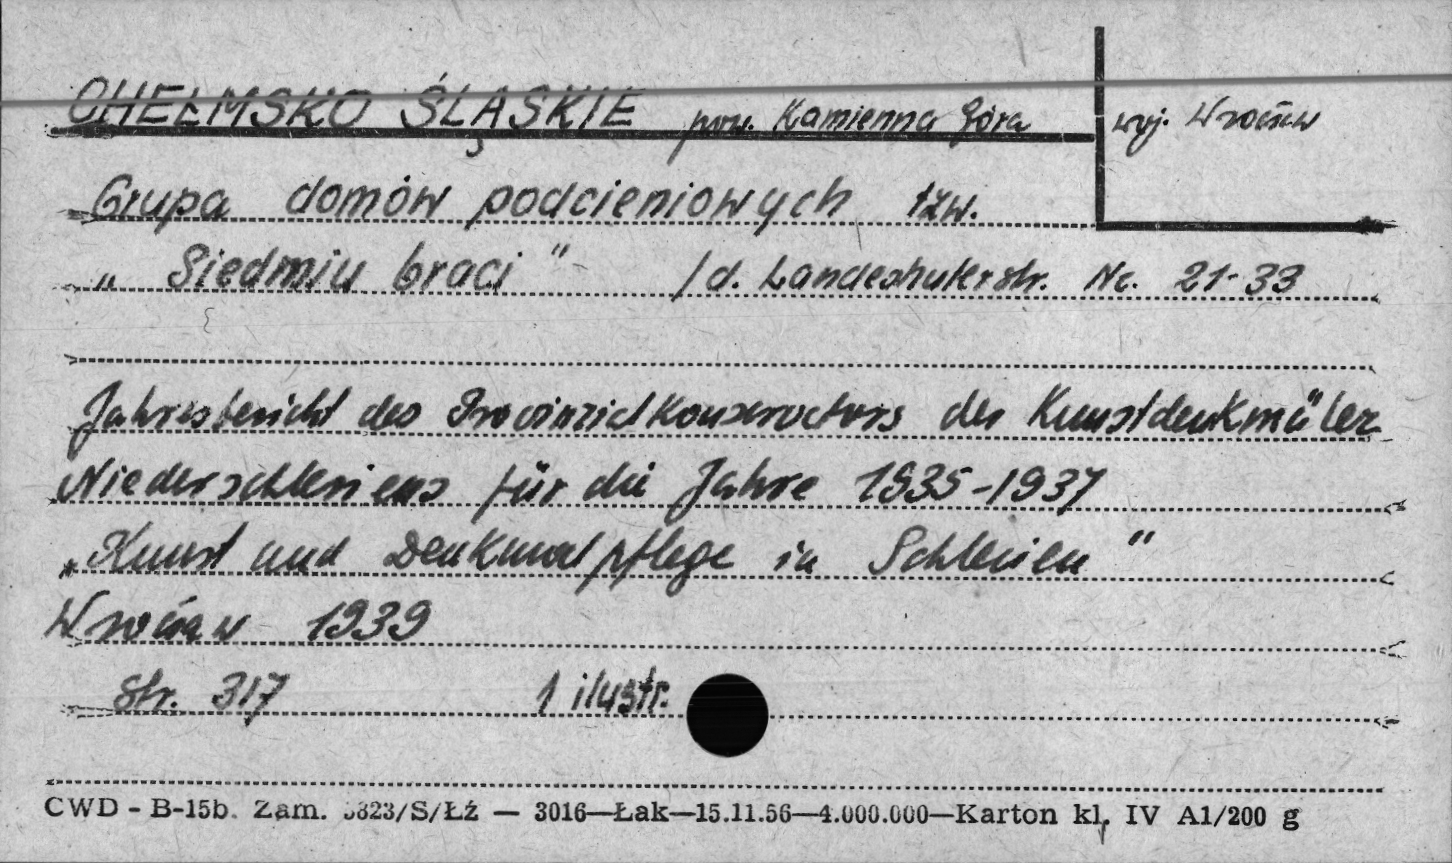 CHEŁMSKO ŚLĄSKIE pow. Kamienna Góra
woj. Wrocław
Grupa domów podcieniowych tzw.
„Siedmiu braci" /d. Landeshuterstr. Nr. 21-33
Jahresbericht des Provinzialkonservators der Kunstdenkmäler
Niederschlesiens für die Jahre 1935-1937
„Kunst und Denkmalpflege in Schlesien"
Wrocław 1939
str. 317 1 ilustr.
CWD - B-15b. Zam. 5323/S/Łź — 3016—Łak—15.11.56—4.000.000—Karton kl. IV A1/200 g